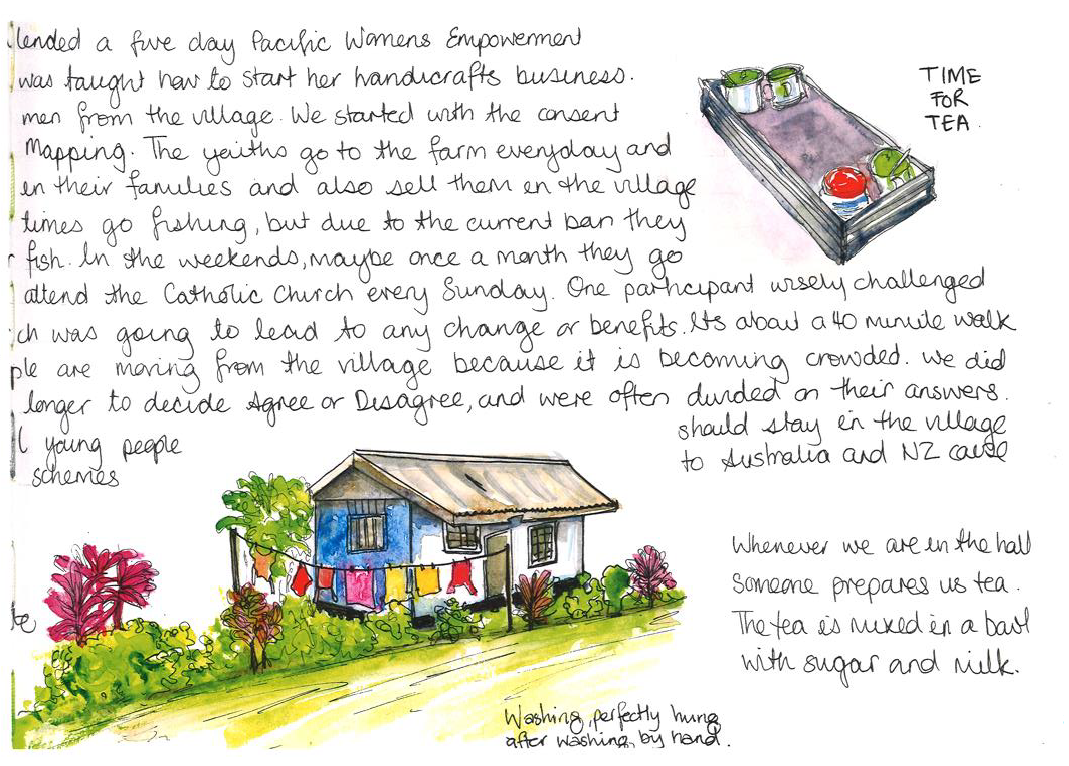 lended a five day Pacific Womens Empowerment
was taught how to start her handicrafts business.
men from the village. We started with the consent
Mapping. The youths go to the farm everyday and
en their families and also sell them in the village
times go fishing, but due to the current ban they
fish. In the weekends, maybe once a month they go
attend the Catholic Church every Sunday. One participant wisely challenged
ch was going to lead to any change or benefits. Its about a 40 minute walk
ple are moving from the village because it is becoming crowded. We did
longer to decide Agree or Disagree, and were often divided on their answers.
l young people should stay in the village
schemes to Australia and NZ cause
TIME
FOR
TEA.
Whenever we are in the hall
Someone prepares us tea.
The tea is mixed in a bowl
with sugar and milk.
te
Washing, perfectly hung
after washing by hand.